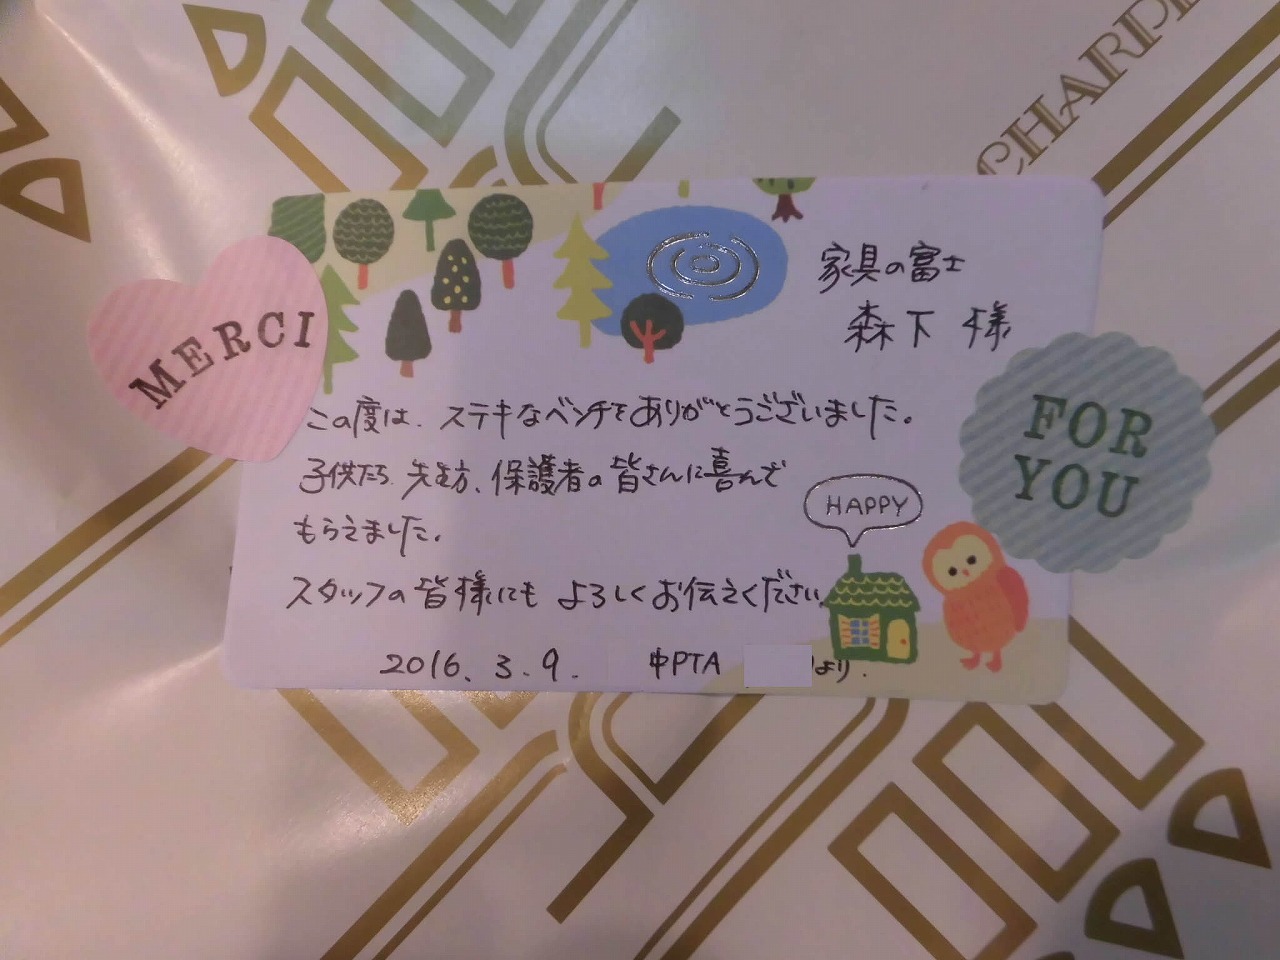 CHARP
家具の富士
森下 様
MERCI
FOR
YOU
この度は、ステキなベンチをありがとうございました。
子供たち、先生方、保護者の皆さんに喜んで
もらえました。
HAPPY
スタッフの皆様にも よろしくお伝えください
2016.3.9. 中PTA より.